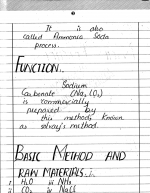 It is also
called Ammonia Soda
process.
FUNCTION..
Sodium
Carbonate (Na2CO3)
is commercially
prepared by
this method, Known
as solvay's method.
BASIC METHOD AND
RAW MATERIALS:.
1. H2O iii NH3
2. CO2 iv NaCl